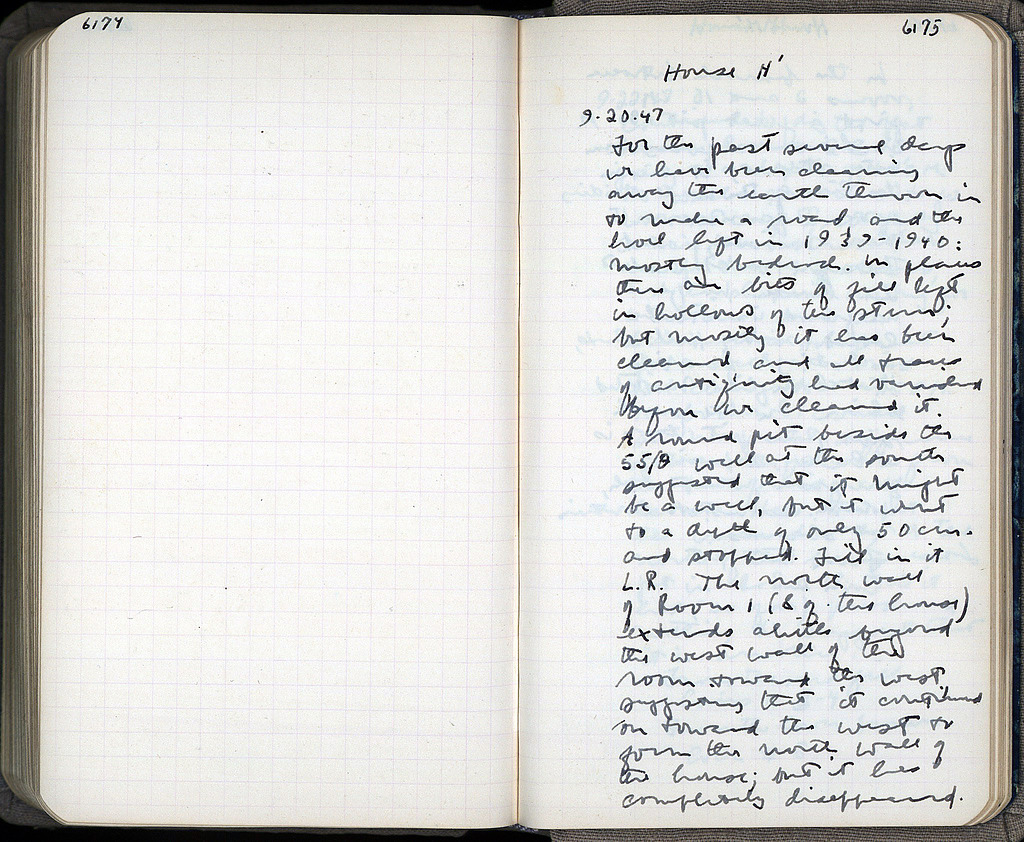 6174
6175
House H'
9-20-47
For the past several days
we have been cleaning
away the earth thrown in
to make a road and the
level left in 1939-1940:
mostly bedrock. In places
there are bits of fill left
in hollows of the stereo;
but mostly it has been
cleaned and all traces
of antiquity had vanished
before we cleaned it.
A round pit beside the
55/Θ wall at the south
suggested that it might
be a well, but it went
to a depth of only 50 cm.
and stopped. Fill in it
L.R. The north wall
of Room 1 (8 of this house)
extends a little beyond
the west wall of the
room toward the west
suggesting that it continued
on toward the west to
form the north wall of
the house; but it has
completely disappeared.